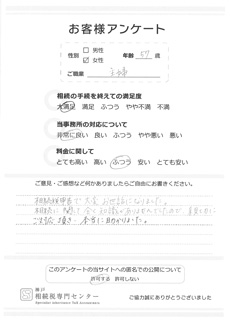 お客様アンケート
性別 □ 男性 ☑ 女性 年齢 57 歳
ご職業 主婦
相続の手続を終えての満足度
大満足 満足 ふつう やや不満 不満
当事務所の対応について
非常に良い 良い ふつう やや悪い 悪い
料金に関して
とても高い 高い ふつう 安い とても安い
ご意見・ご感想など何かありましたらご自由にお書きください。
相続税申告で大変お世話になりました。
本当に助かりました。
このアンケートの当サイトへの匿名での公開について
許可する 許可しない
神戸
相続税専門センター
ご協力誠にありがとうございました